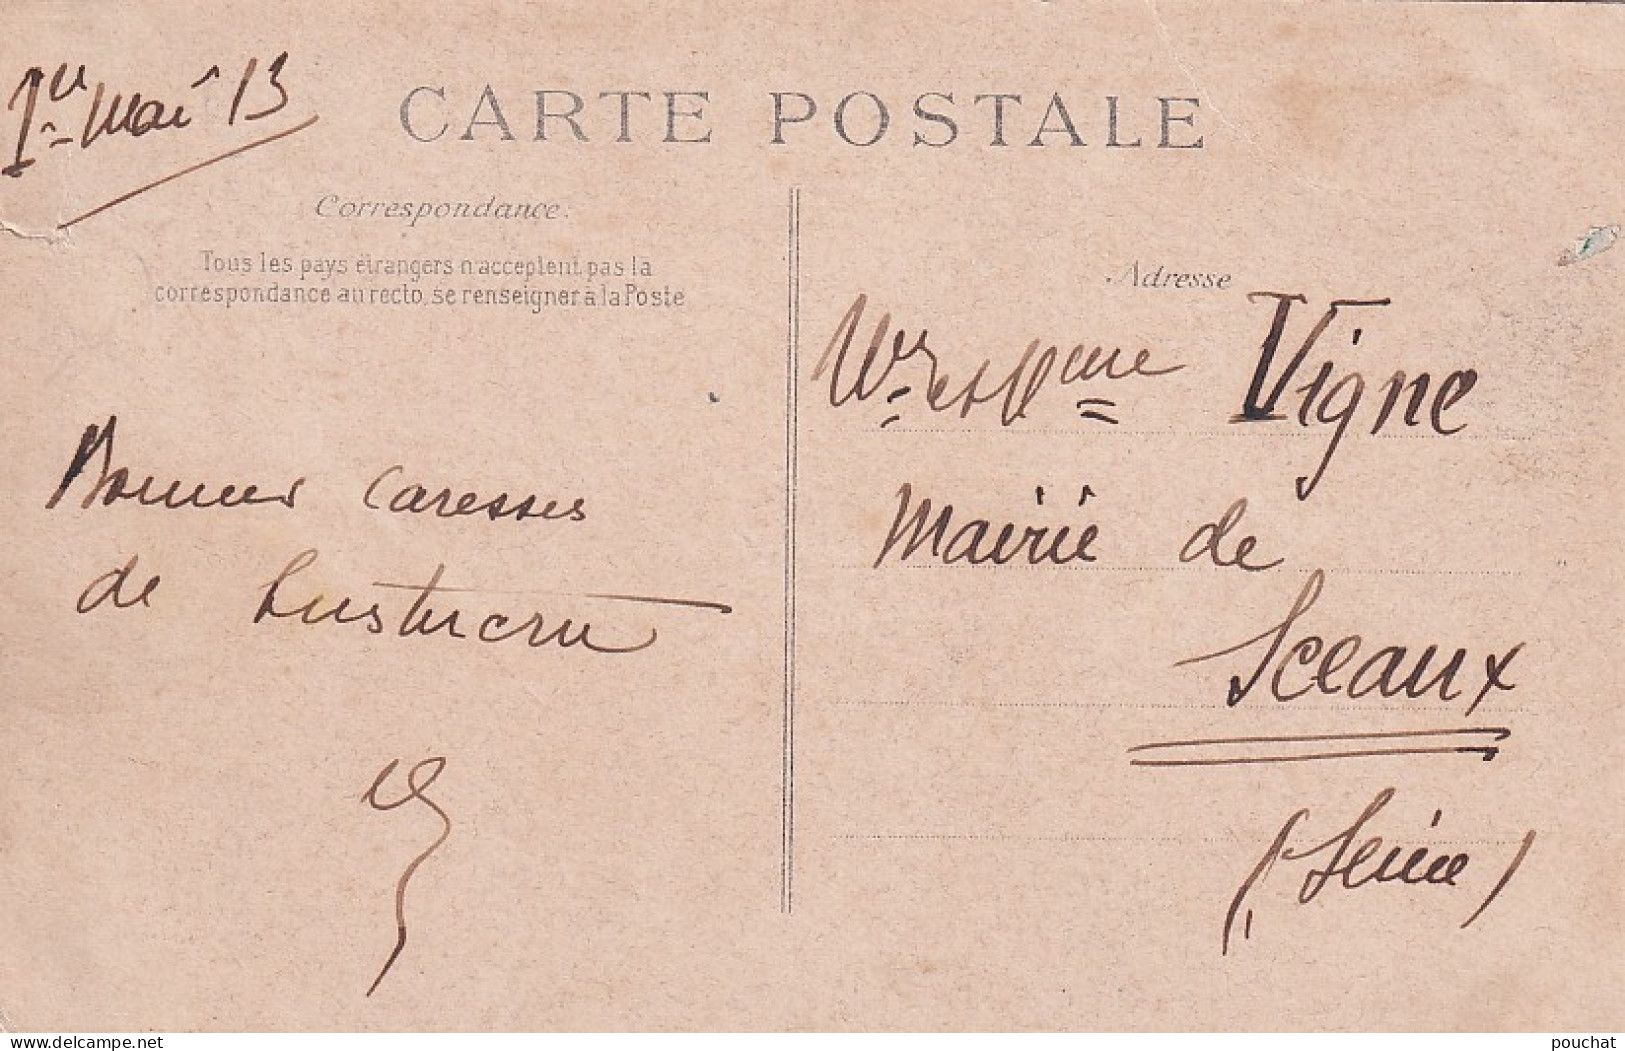 1er mai 13
CARTE POSTALE
Correspondance:
Tous les pays étrangers n'acceptent pas la
correspondance au recto, se renseigner à la Poste
Bonnes caresses
de Lustucru
Adresse
Mr et Mme Vigne
Mairie de
Sceaux
(Seine)
delcampe.net
pouchat